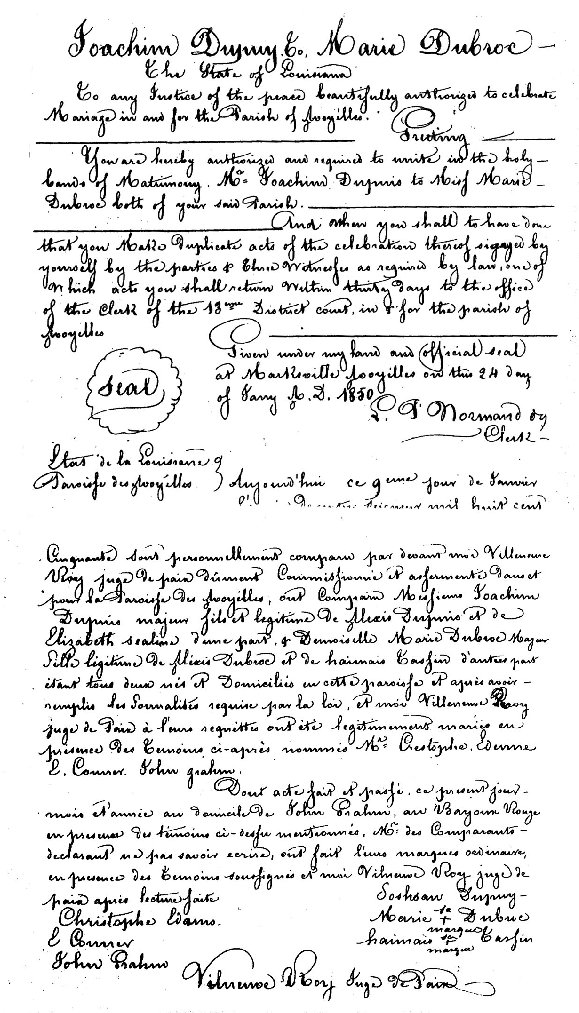 Joachim Dupuy To. Marie Dubroc —
The State of Louisiana
To any Justice of the peace beautifully authorized to celebrate
Mariage in and for the Parish of Avoyelles.
Greeting
You are hereby authorized and required to unite in the holy
bands of Matrimony. Mr. Joachim Dupuis to Miss Marie
Dubroc both of your said Parish.
And when you shall to have done
that you Make Duplicate acts of the celebration thereof signed by
yourself by the parties & three Witnesses as required by law, one of
Which acts you shall return within thirty days to the office
of the Clerk of the 13eme District court, in & for the parish of
Avoyelles
Given under my hand and official seal
at Marksville Avoyelles on this 24 day
of Jany A. D. 1850
Seal
L. P Normand dy
Clerk —
Etat de la Louisiane
Paroisse des Avoyelles ) Aujourd'hui ce 9eme jour de Janvier
mil huit cent
Cinquante sont personnellement comparu par devant moi Villeneuve
Roy juge de paix dûment Commissionné et assermenté dans et
pour la Paroisse des Avoyelles, ont Comparu Messieurs Joachim
Dupuis majeur fils et legitime de Alexis Dupuis et de
Elizabeth d'une part, & Demoiselle Marie Dubroc Majeur
fille légitime de Alexis Dubroc et de hainais Cashin d'autres part
étant tous deux nés et Domiciliés en cette paroisse et après avoir
remplis les formalités requise par la loi, et moi Villeneuve Roy
juge de Paix à leurs requêttes ont été legitimement mariés en
présence des Temoins ci-après nommés Mr. Crestophe. Edemme
E. Conner. John grahm.
Dont acte fait et passé, ce present jour
mois et année au domicile de John Prahm, au Bayour Rouge
en presence des témoins ci-dessu mentionnés, Mr. des Comparants
declarant ne pas savoir ecrire, ont fait leurs marques ordinaire,
en presence des Temoins soussignés et moi Vilneuve Roy juge de
paix après lecture faite
Soshoan Dupuy
Christophe Edams.
Marie sa + marque Dubuc
E Conner
hainais sa + marque Cashin
John Prahm
Vilneuve Roy Juge de Paix